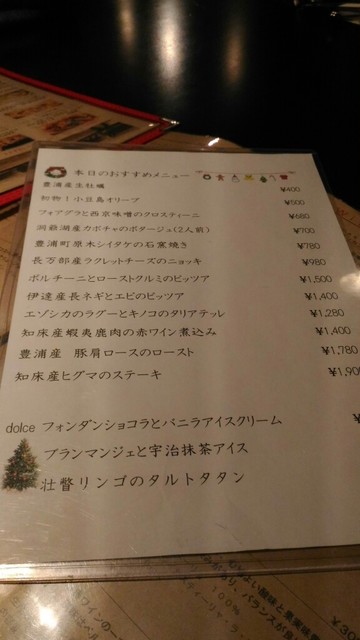 本日のおすすめメニュー
豊浦産生牡蠣 ¥400
初物!小豆島オリーブ ¥500
フォアグラと西京味噌のクロスティーニ ¥680
洞爺湖産カボチャのポタージュ(2人前) ¥700
豊浦町原木シイタケの石窯焼き ¥780
長万部産ラクレットチーズのニョッキ ¥980
ポルチーニとローストクルミのピッツア ¥1,500
伊達産長ネギとエビのピッツア ¥1,400
エゾシカのラグーとキノコのタリアテッレ ¥1,280
知床産蝦夷鹿肉の赤ワイン煮込み ¥1,400
豊浦産 豚肩ロースのロースト ¥1,780
知床産ヒグマのステーキ ¥1,90
dolce フォンダンショコラとバニラアイスクリーム ¥
ブランマンジェと宇治抹茶アイス
壮瞥リンゴのタルトタタン